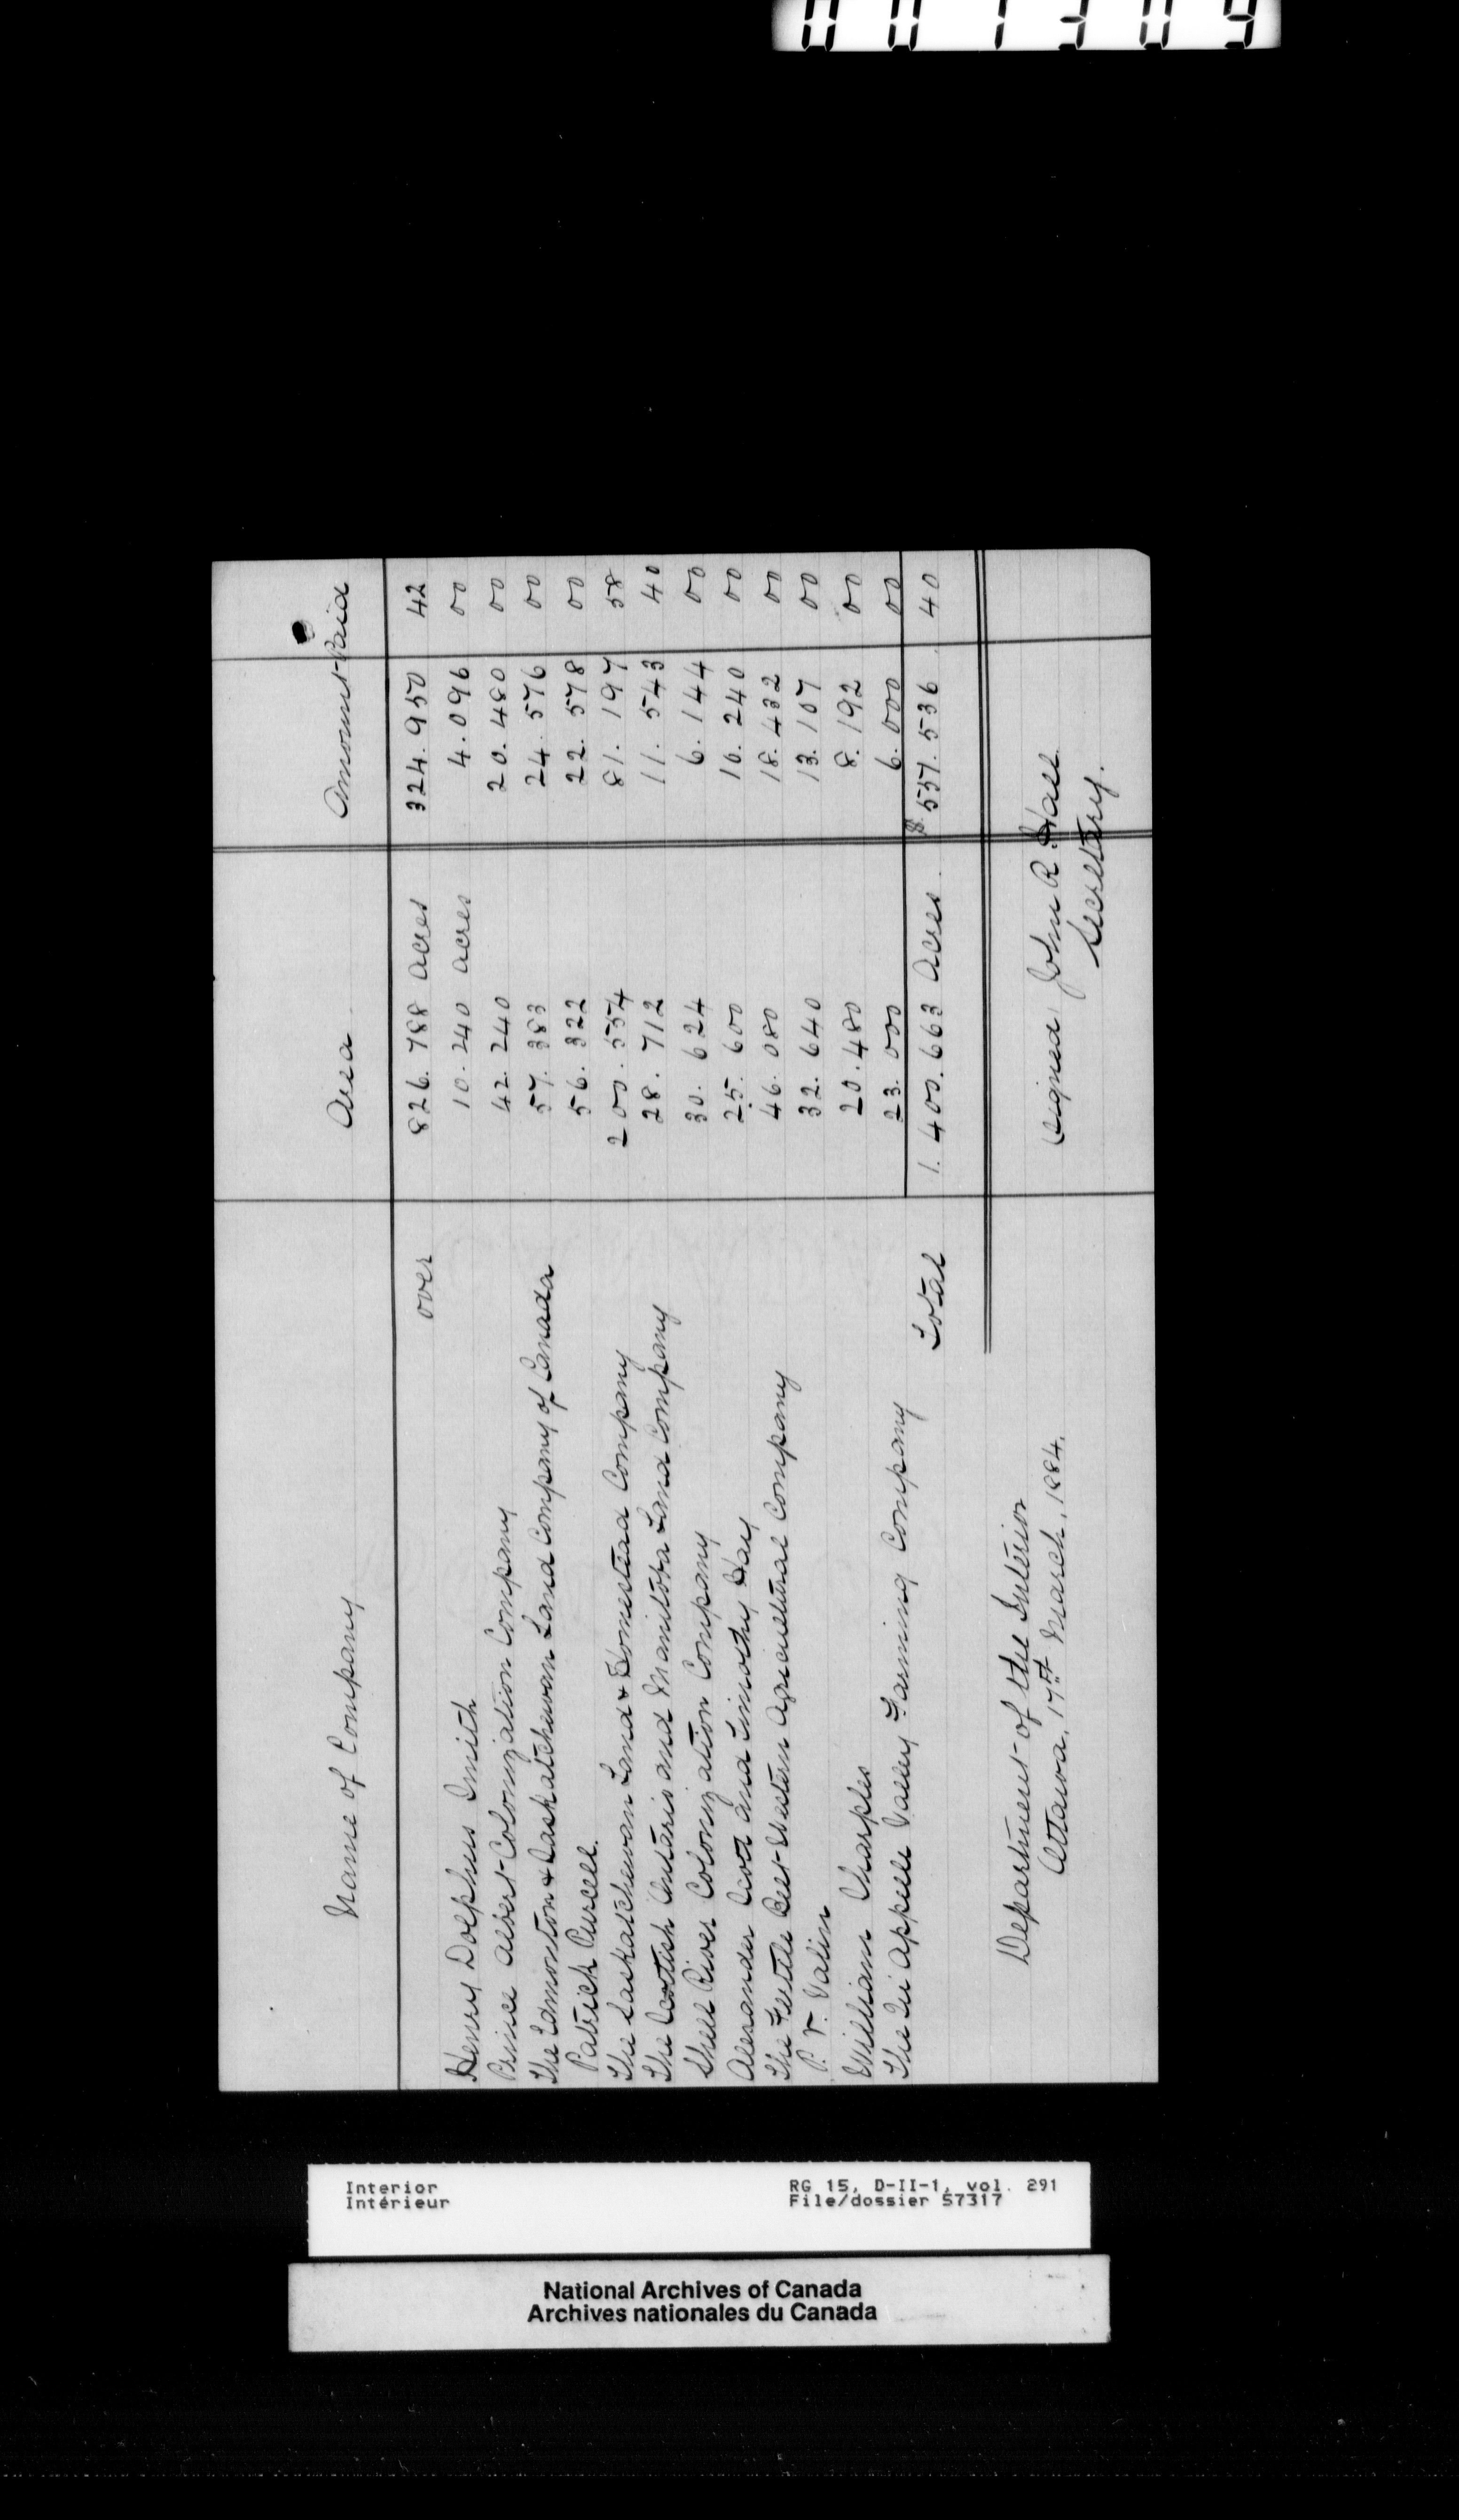 Name of Company Area Amount Paid
over 826.788 acres 324.950 42
Henry Dolphus Smith 10.240 acres 4.096 00
Prince Albert Colonization Company 42.240 20.480 00
The Edmonton & Saskatchewan Land Company of Canada 57.383 24.576 00
Patrick Purcell. 56.322 22.578 00
The Saskatchewan Land & Homestead Company 200.554 81.197 58
The Scottish Ontario and Manitoba Land Company 28.712 11.543 40
Shell River Colonization Company 30.624 6.144 00
Alexander Scott and Timothy Hay 25.600 10.240 00
The Fertile Belt Western Agricultural Company 46.080 18.432 00
P. V. Valin 32.640 13.107 00
William Sharples 20.480 8.192 00
The Qu'Appelle Valley Farming Company 23.000 6.000 00
Total 1.400.663 Acres $ 557.536 40
Department of the Interior
Ottawa, 17th March, 1884.
Signed John R. Hall
Secretary.
Interior RG 15, D-II-1, vol. 291
Intérieur File/dossier 57317
National Archives of Canada
Archives nationales du Canada